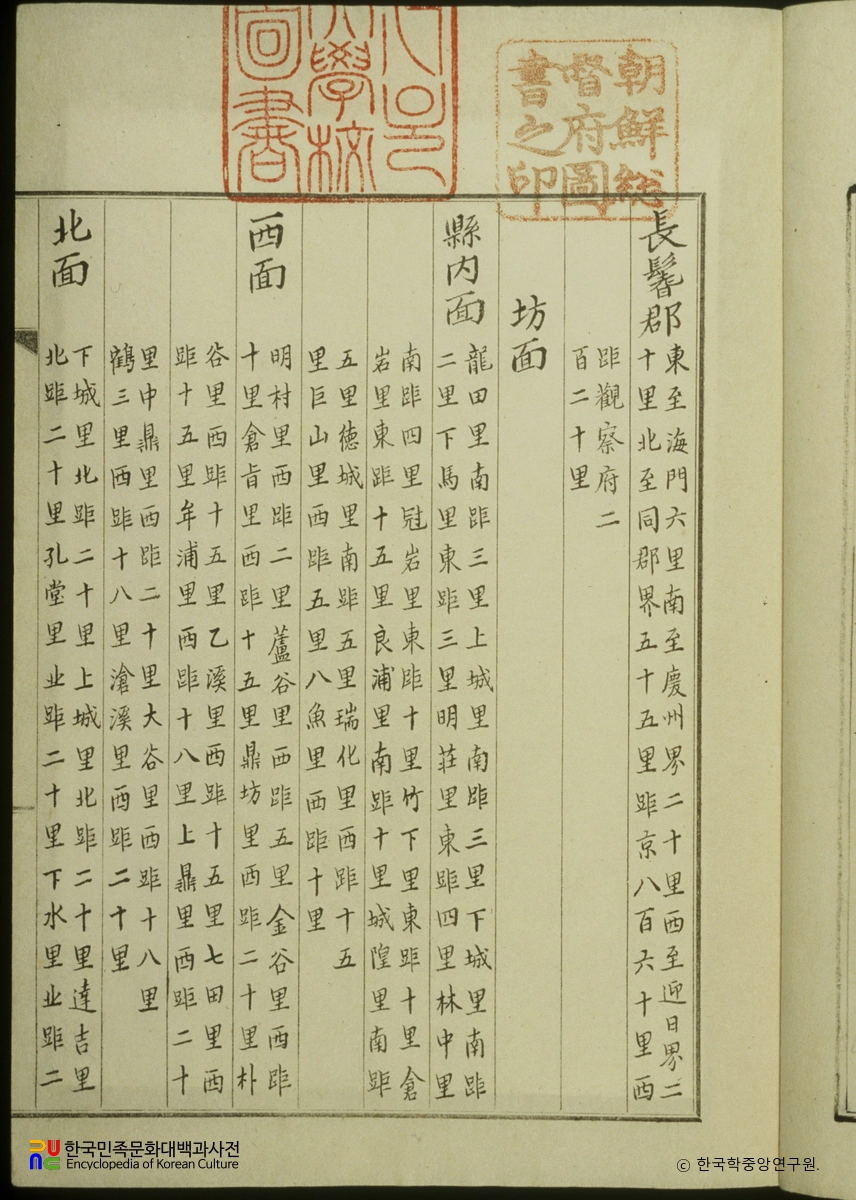 朝鮮総
督府圖
書之印
大學校
圖書
長鬐郡
東至海門六里南至慶州界二十里西至迎日界二
十里北至同郡界五十五里距京八百六十里西
距觀察府二
百二十里
坊面
縣内面
龍田里南距三里上城里南距三里下城里南距
二里下馬里東距三里明莊里東距四里林中里
南距四里冠岩里東距十里竹下里東距十里倉
岩里東距十五里良浦里南距十里城隍里南距
五里德城里南距五里瑞化里西距十五
里巨山里西距五里八魚里西距十里
西面
明村里西距二里蘆谷里西距五里金谷里西距
十里倉旨里西距十五里鼎坊里西距二十里朴
谷里西距十五里乙溪里西距十五里七田里西
距十五里牟浦里西距十八里上鼎里西距二十
里中鼎里西距二十里大谷里西距十八里
鶴三里西距十八里滄溪里西距二十里
北面
下城里北距二十里上城里北距二十里達吉里
北距二十里孔堂里北距二十里下水里北距二
한국민족문화대백과사전
Encyclopedia of Korean Culture
ⓒ 한국학중앙연구원.